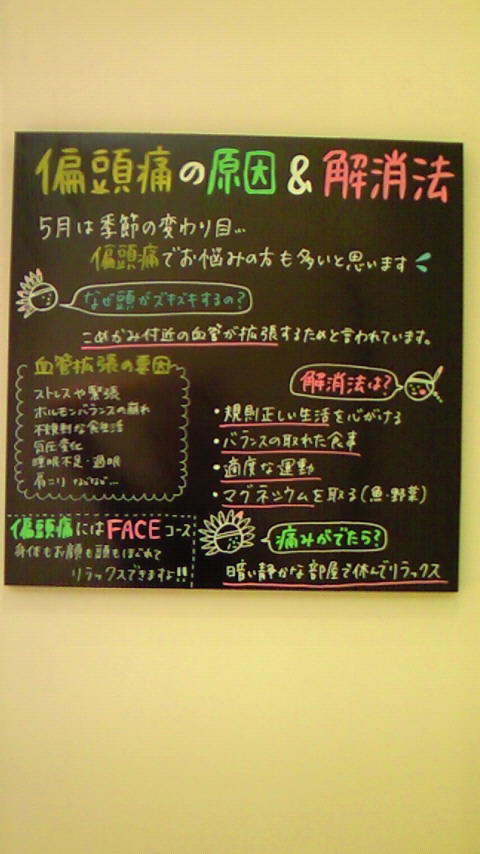 偏頭痛の原因&解消法
5月は季節の変わり目…
偏頭痛でお悩みの方も多いと思います
なぜ頭がズキズキするの?
こめかみ付近の血管が拡張するためと言われています。
血管拡張の要因
ストレスや緊張
ホルモンバランスの崩れ
不規則な食生活
気圧変化
睡眠不足・過眠
肩こり などなど…
解消法は?
・規則正しい生活を心がける
・バランスの取れた食事
・適度な運動
・マグネシウムを取る(魚・野菜)
偏頭痛にはFACEコース
身体もお顔も頭もほぐれて
リラックスできますよ!!
痛みがでたら?
暗い静かな部屋で休んでリラックス